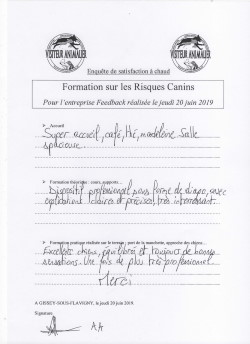 VISITEUR ANIMALIER
VISITEUR ANIMALIER
Enquête de satisfaction à chaud
Formation sur les Risques Canins
Pour l'entreprise Feedback réalisée le jeudi 20 juin 2019
➤ Accueil
Super accueil, café, thé, madeleine. Salle
spacieuse.
➤ Formation théorique : cours, apports…
Dispositif professionnel sous forme de diapo, avec
explications claires et précises, très intéressant.
➤ Formation pratique réalisée sur le terrain : port de la manchette, approche des chiens…
Excellents chiens, équilibrés et toujours de bonnes
sensations. Une fois de plus très professionnel.
Merci
A GISSEY-SOUS-FLAVIGNY, le jeudi 20 juin 2019
Signature
AA